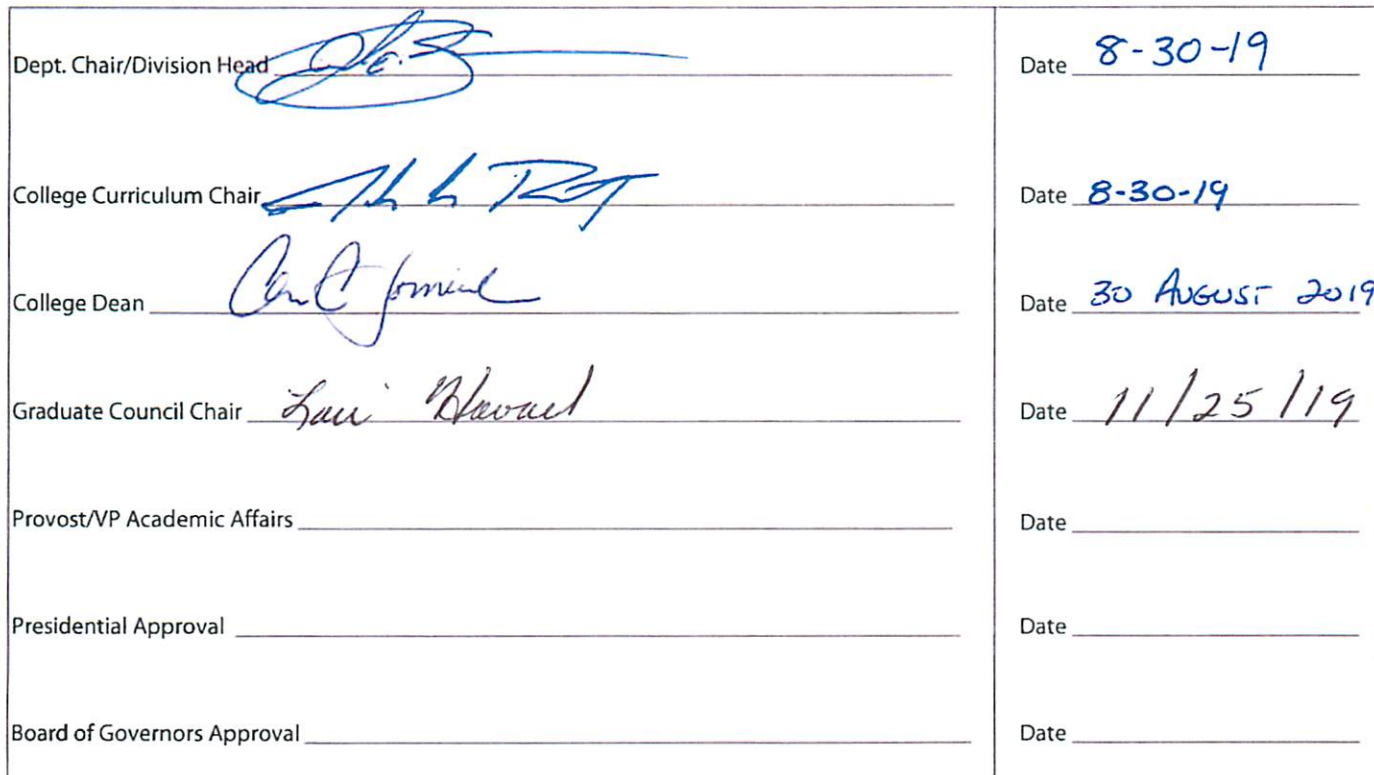 Dept. Chair/Division Head Date 8-30-19
College Curriculum Chair Date 8-30-19
College Dean Date 30 AUGUST 2019
Graduate Council Chair Date 11/25/19
Provost/VP Academic Affairs Date
Presidential Approval Date
Board of Governors Approval Date